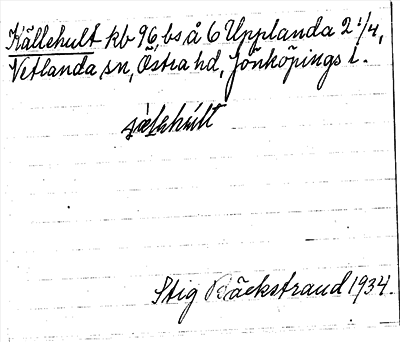 Källehult kb 96, bs å 6 Upplanda 2 1/4,
Vetlanda sn, Östra hd, Jönköpings l.
Stig Bäckstrand 1934.